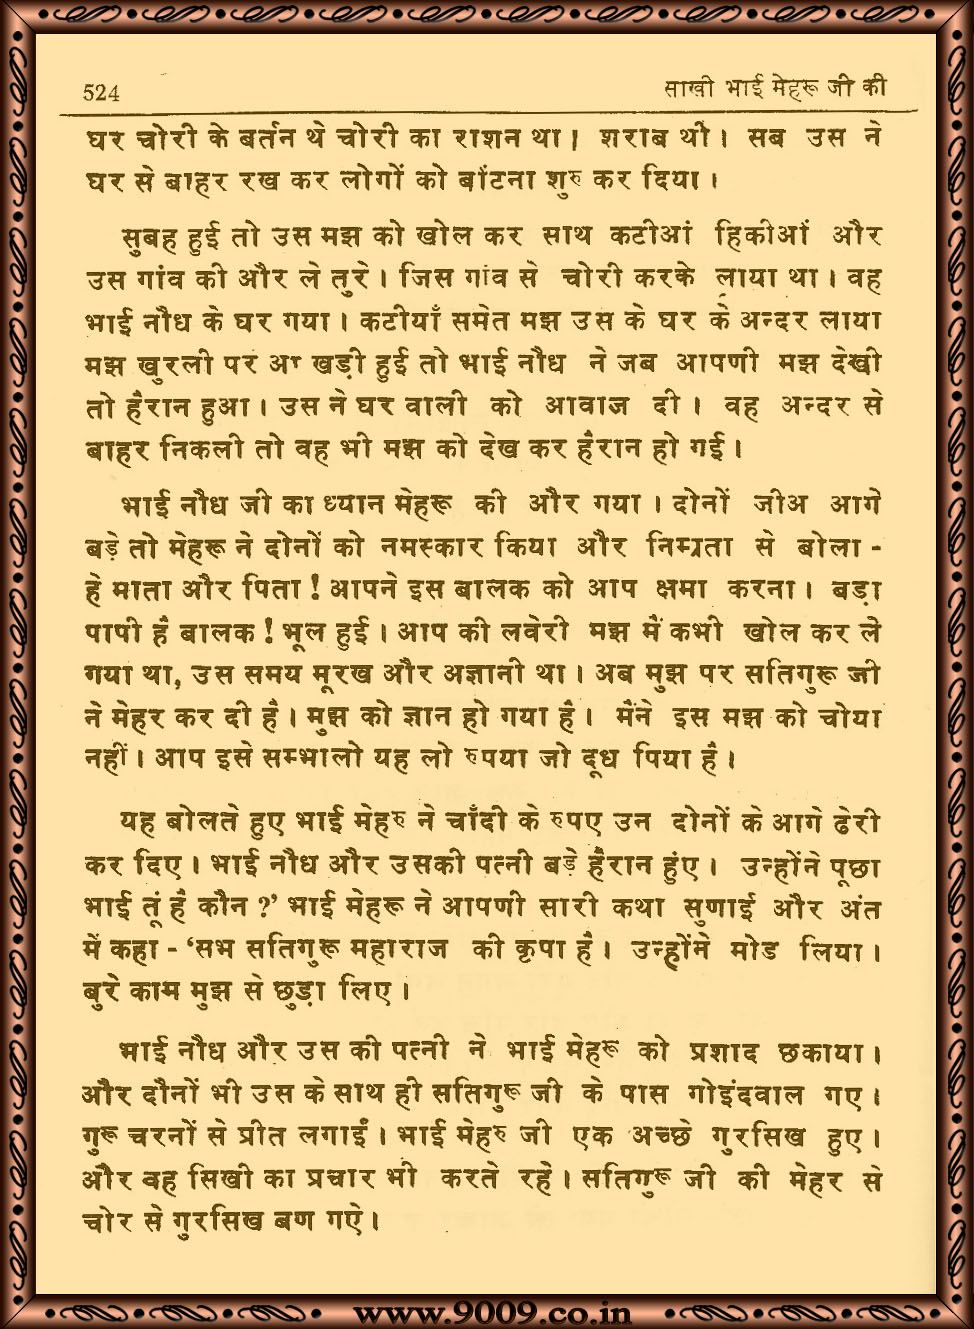 524 साखी भाई मेहरू जी की
घर चोरी के बर्तन थे चोरी का राशन था। शराब थी। सब उस ने
घर से बाहर रख कर लोगों को बांटना शुरु कर दिया।
सुबह हुई तो उस मझ को खोल कर साथ कटीआं हिकीआं और
उस गांव की और ले तुरे। जिस गांव से चोरी करके लाया था। वह
भाई नौध के घर गया। कटीयाँ समेत मझ उस के घर के अन्दर लाया
मझ खुरली पर आ खड़ी हुई तो भाई नौध ने जब आपणी मझ देखी
तो हैरान हुआ। उस ने घर वाली को आवाज दी। वह अन्दर से
बाहर निकली तो वह भी मझ को देख कर हैरान हो गई।
भाई नौध जी का ध्यान मेहरू की और गया। दोनों जीअ आगे
बड़े तो मेहरू ने दोनों को नमस्कार किया और निम्रता से बोला -
हे माता और पिता! आपने इस बालक को आप क्षमा करना। बड़ा
पापी है बालक! भूल हुई। आप की लवेरी मझ मैं कभी खोल कर ले
गया था, उस समय मूरख और अज्ञानी था। अब मुझ पर सतिगुरू जी
ने मेहर कर दी है। मुझ को ज्ञान हो गया है। मैंने इस मझ को चोया
नहीं। आप इसे सम्भालो यह लो रुपया जो दूध पिया है।
यह बोलते हुए भाई मेहरु ने चाँदी के रुपए उन दोनों के आगे ढेरी
कर दिए। भाई नौध और उसकी पत्नी बड़े हैरान हुंए। उन्होंने पूछा
भाई तूं है कौन ?’ भाई मेहरू ने आपणी सारी कथा सुणाई और अंत
में कहा - ‘सभ सतिगुरू महाराज की कृपा है। उन्होंने मोड लिया।
बुरे काम मुझ से छुड़ा लिए।
भाई नौध और उस की पत्नी ने भाई मेहरू को प्रशाद छकाया।
और दौनों भी उस के साथ ही सतिगुरू जी के पास गोइंदवाल गए।
गुरू चरनों से प्रीत लगाईं। भाई मेहरु जी एक अच्छे गुरसिख हुए।
और वह सिखी का प्रचार भी करते रहे। सतिगुरू जी की मेहर से
चोर से गुरसिख बण गऐ।
www.9009.co.in